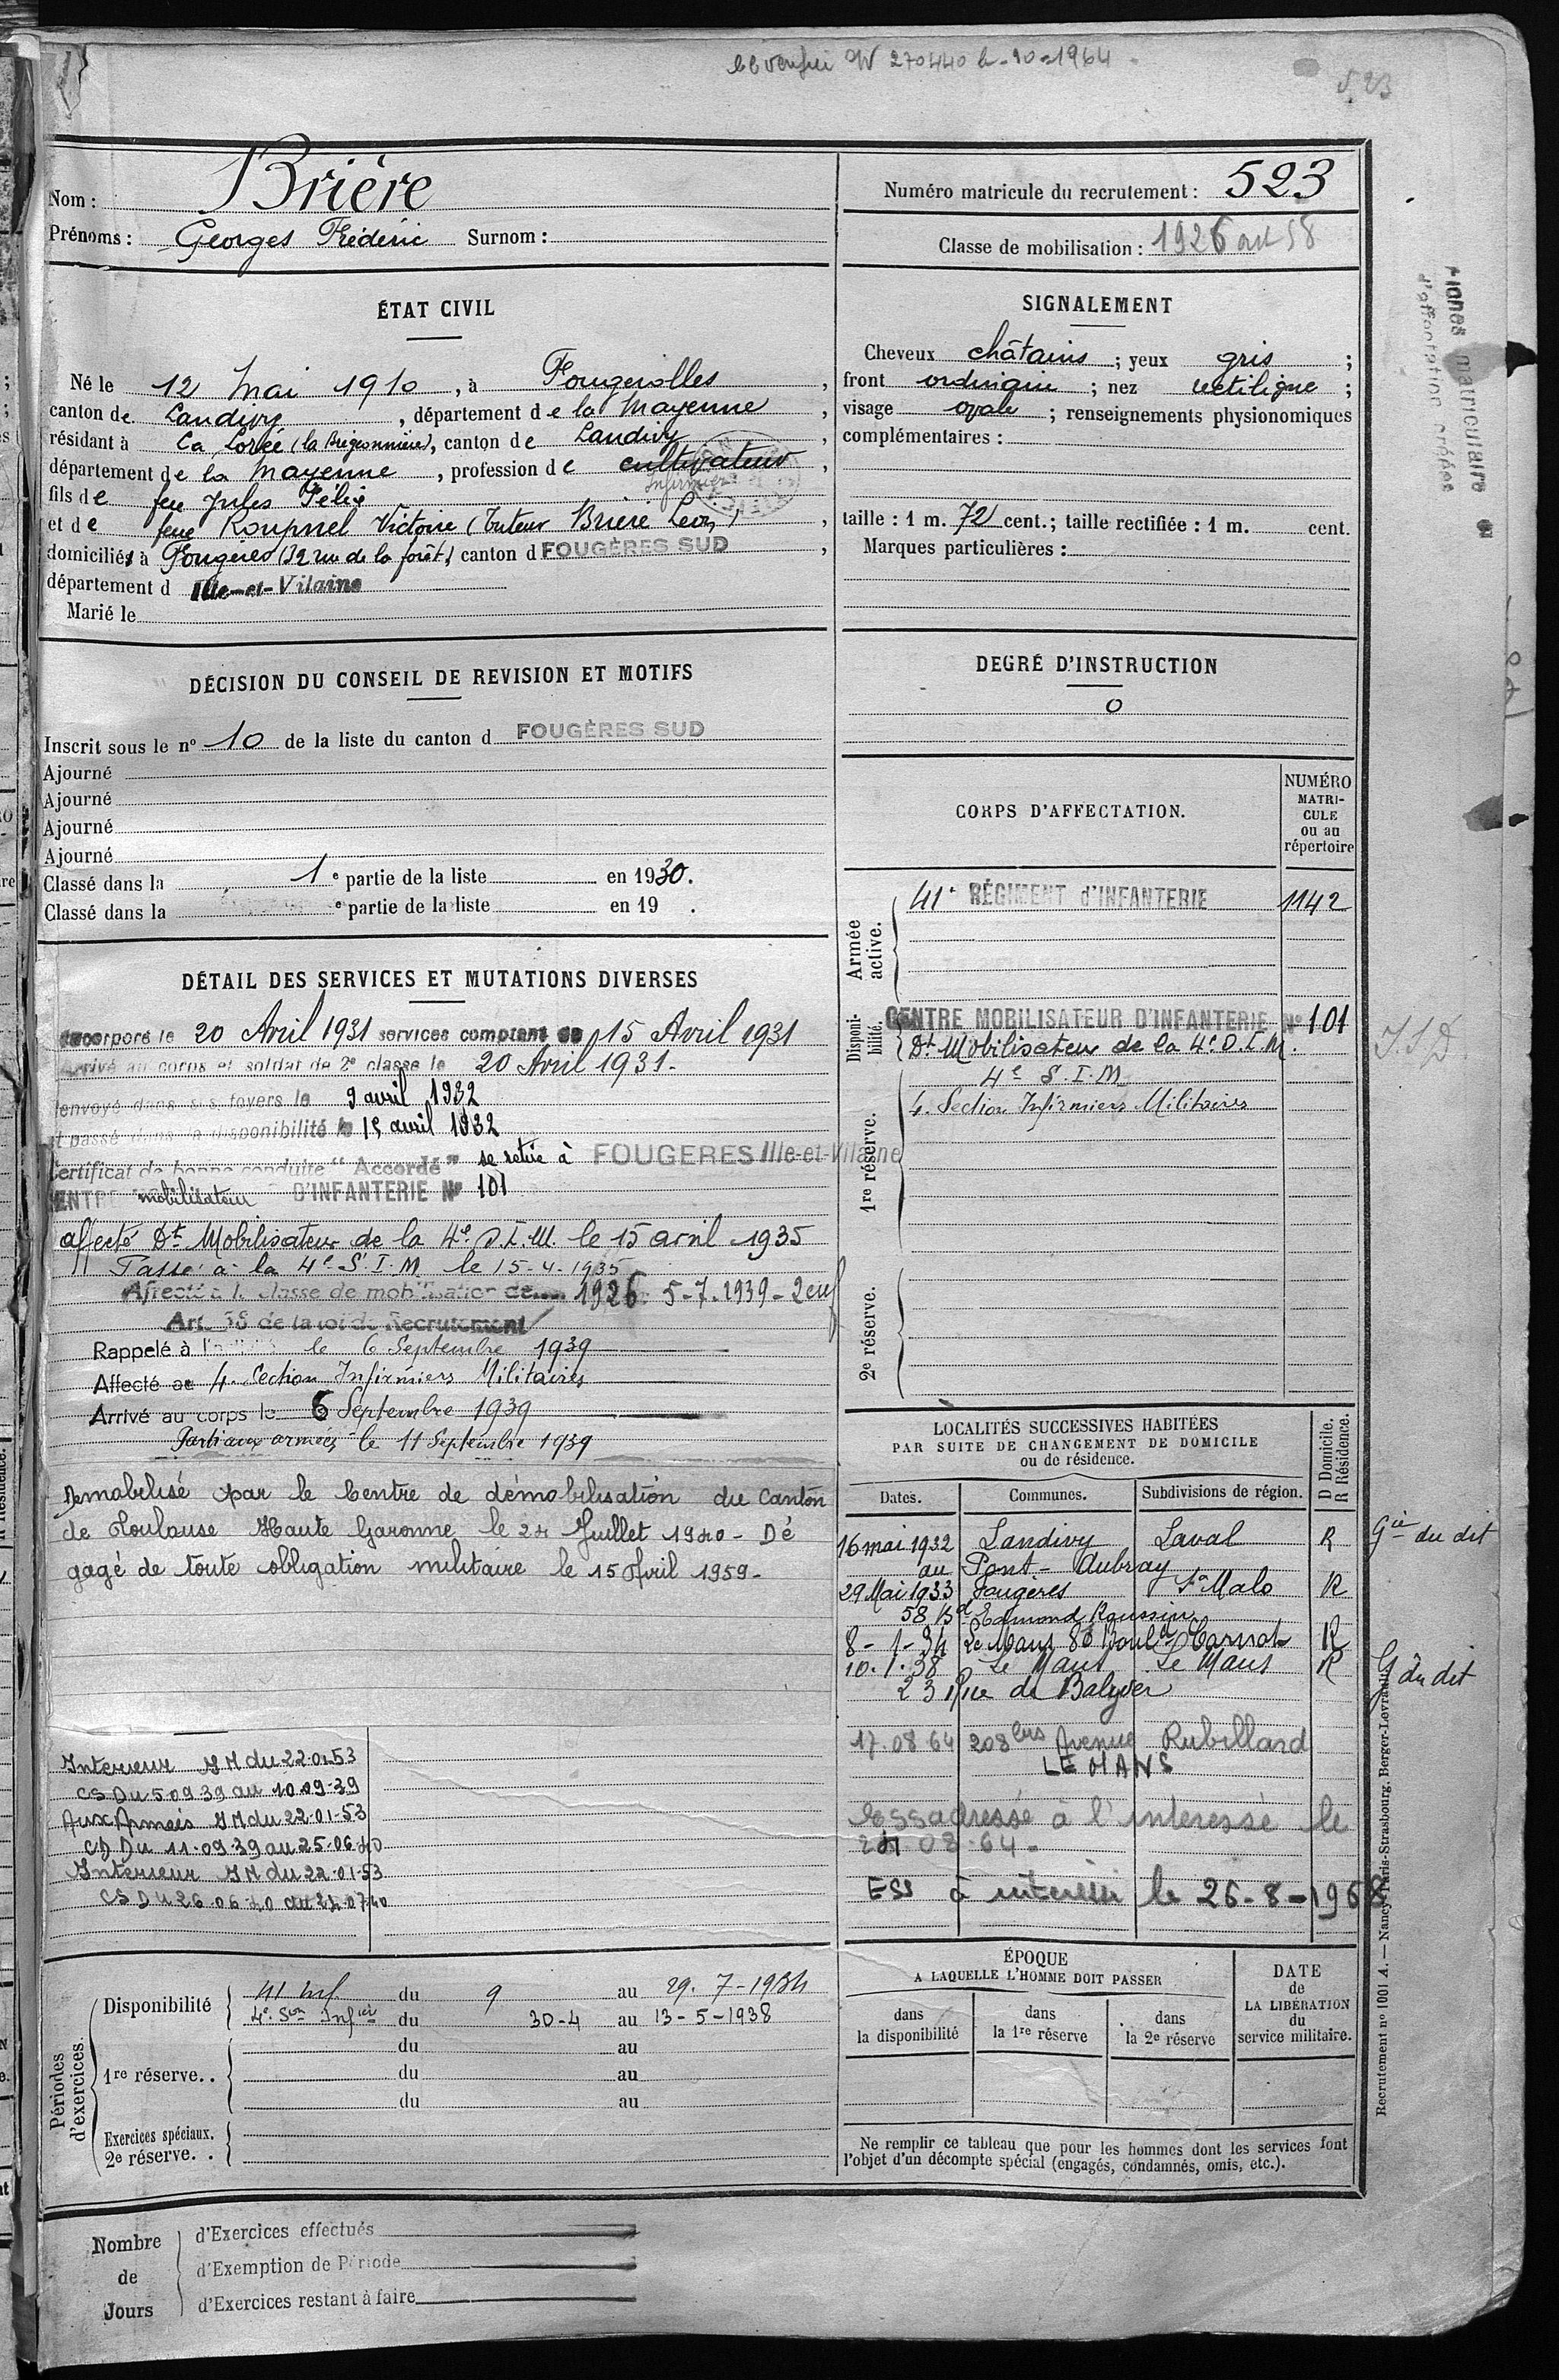 N° 270440 10-1964
523
Nom : Brière
Prénoms : Georges Frédéric Surnom :
Numéro matricule du recrutement : 523
Classe de mobilisation : 1926 art 58
ÉTAT CIVIL
Né le 12 Mai 1910, à Fougerolles,
canton de Landivy, département de la Mayenne,
résidant à La Dorée (la Brégeonnière), canton de Landivy,
département de la Mayenne, profession de cultivateur,
Infirmier
fils de feu Jules Félix
et de feue Roupnel Victoire (Tuteur Brière Léon),
domiciliés à Fougères (32 rue de la forêt) canton d FOUGÈRES SUD,
département d Ille-et-Vilaine
Marié le
SIGNALEMENT
Cheveux châtains ; yeux gris ;
front ordinaire ; nez rectiligne ;
visage ovale ; renseignements physionomiques
complémentaires :
taille : 1 m. 72 cent. ; taille rectifiée : 1 m. cent.
Marques particulières :
DÉCISION DU CONSEIL DE REVISION ET MOTIFS
Inscrit sous le n° 10 de la liste du canton d FOUGÈRES SUD
Ajourné
Ajourné
Ajourné
Ajourné
Classé dans la 1e partie de la liste en 1930.
Classé dans la e partie de la liste en 19 .
DEGRÉ D'INSTRUCTION
0
CORPS D'AFFECTATION.
NUMÉRO
MATRI-
CULE
ou au
répertoire
Armée active.
41e RÉGIMENT d'INFANTERIE 1142
Disponi-bilité.
CENTRE MOBILISATEUR D'INFANTERIE N° 101
Dt Mobilisateur de la 4e D.I.M.
1re réserve.
4e S.I.M
4e Section Infirmiers Militaires
2e réserve.
DÉTAIL DES SERVICES ET MUTATIONS DIVERSES
Incorporé le 20 Avril 1931 services comptant du 15 Avril 1931
Arrivé au corps et soldat de 2e classe le 20 Avril 1931.
Renvoyé dans ses foyers le 9 avril 1932
et passé dans la disponibilité le 15 avril 1932
Certificat de bonne conduite "Accordé" se retire à FOUGERES Ille-et-Vilaine
CENTRE mobilisateur D'INFANTERIE N° 101
affecté Dt Mobilisateur de la 4e D.I.M. le 15 avril 1935
Passé à la 4e S.I.M. le 15-4-1935
Affecté à la classe de mobilisation de 1926 5-7-1939 - 2 enf
Art. 58 de la loi de Recrutement
Rappelé à l' le 6 Septembre 1939
Affecté au 4e Section Infirmiers Militaires
Arrivé au corps le 6 Septembre 1939
Parti aux armées le 11 Septembre 1939
Démobilisé par le Centre de démobilisation du Canton
de Toulouse Haute Garonne le 24 Juillet 1940 - Dé
gagé de toute obligation militaire le 15 Avril 1959 -
Interieur IM du 22.01.53
CS Du 5 09 39 au 10.09.39
Aux Armées IM du 22-01-53
CD Du 11-09.39 au 25-06 40
Interieur IM du 22-01-53
CS Du 26.06 40 au 24.07 40
LOCALITÉS SUCCESSIVES HABITÉES
PAR SUITE DE CHANGEMENT DE DOMICILE
ou de résidence.
D Domicile.
R Résidence.
Dates. Communes. Subdivisions de région.
16 mai 1932 Landivy Laval R Gie du dit
au Pont-Aubray
29 Mai 1933 Fougères St Malo R
58 Bd Edmond Roussin
8-1-34 Le Mans 80 Bould Carnot R
10.1.38 Le Mans Le Mans R G du dit
23 Rue de
17.08 64 208 bis Avenue Rubillard
LE MANS
ESS adressé à l'interessé le
24 08.64.
ESS à interessé le 26-8-1968
Périodes d'exercices.
Disponibilité
41 Inf. du 9 au 29.7-1934
4e Son Infiers du 30-4 au 13-5-1938
1re réserve..
du au
du au
du au
Exercices spéciaux.
2e réserve..
ÉPOQUE
A LAQUELLE L'HOMME DOIT PASSER
dans la disponibilité
dans la 1re réserve
dans la 2e réserve
DATE
de
LA LIBÉRATION
du
service militaire.
Ne remplir ce tableau que pour les hommes dont les services font
l'objet d'un décompte spécial (engagés, condamnés, omis, etc.).
Nombre de Jours
d'Exercices effectués
d'Exemption de Période
d'Exercices restant à faire
Fiches matriculaire et
d'affectation créées
Recrutement n° 1001 A. — Nancy-Paris-Strasbourg, Berger-Levrault